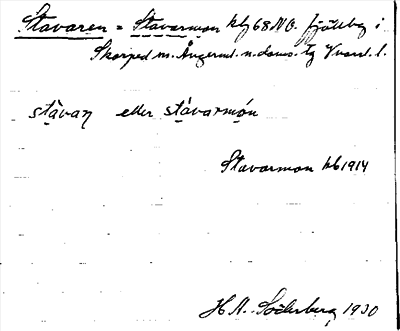 Stavaren = Stavarmon kbl 68 NO. fjällbg i
Skorped sn. Ångerml. n. doms. tg Västl. l.
stávaṇ eller stávarmón
Stavarmon kb 1914
H.A. Söderberg 1930